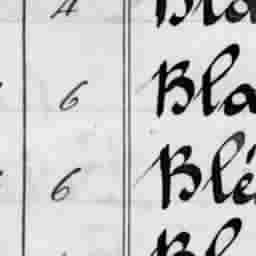 4 Bla
6 Bla
6 Blé
Bl